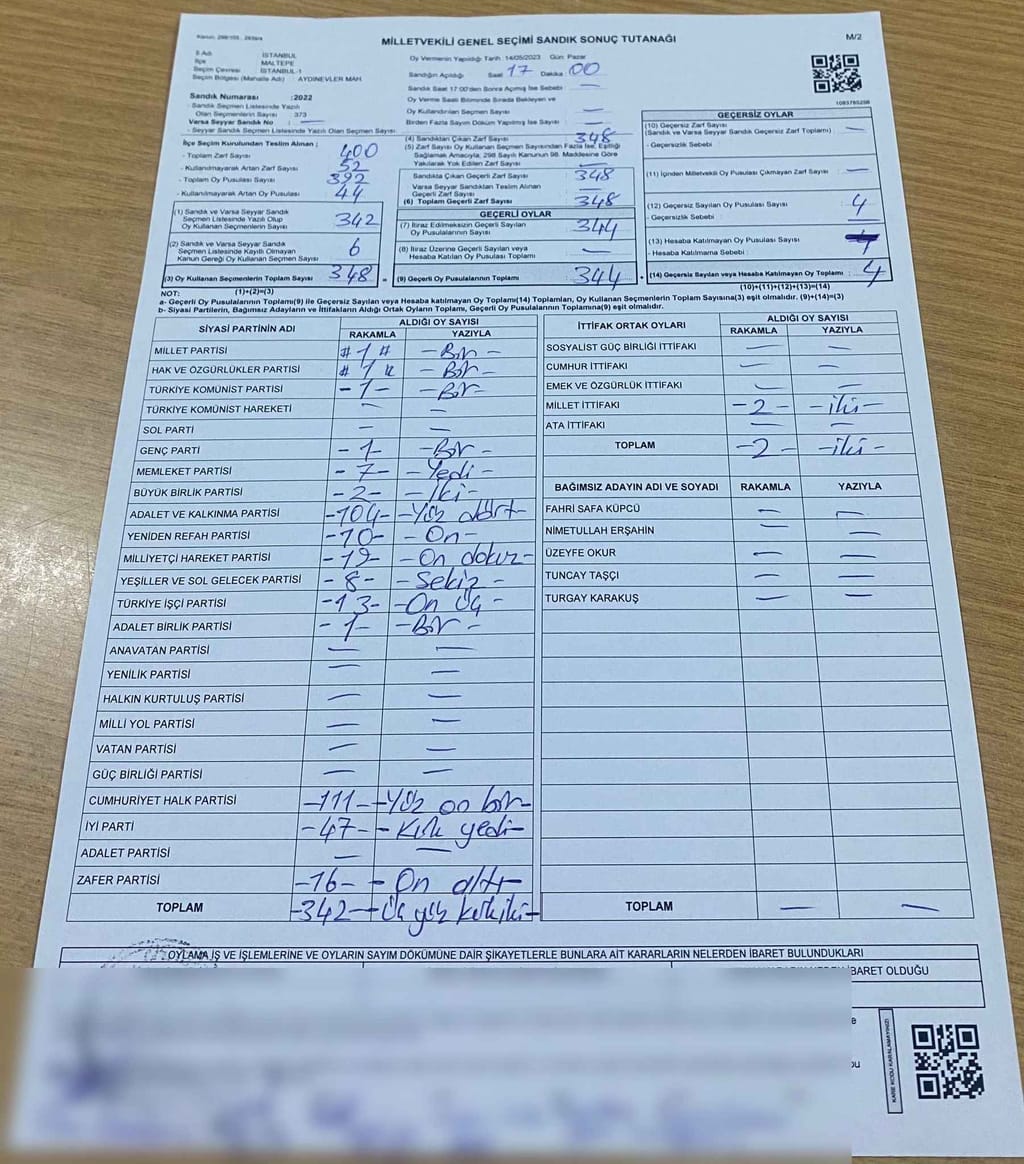 Kanun: 298/105
MİLLETVEKİLİ GENEL SEÇİMİ SANDIK SONUÇ TUTANAĞI
M/2
İl Adı : İSTANBUL
İlçe : MALTEPE
Seçim Çevresi : İSTANBUL-1
Seçim Bölgesi (Mahalle Adı) : AYDINEVLER MAH.
Sandık Numarası : 2022
- Sandık Seçmen Listesinde Yazılı
Olan Seçmenlerin Sayısı : 373
Varsa Seyyar Sandık No : —
- Seyyar Sandık Seçmen Listesinde Yazılı Olan Seçmen Sayısı :
İlçe Seçim Kurulundan Teslim Alınan ;
- Toplam Zarf Sayısı : 400
- Kullanılmayarak Artan Zarf Sayısı : 52
- Toplam Oy Pusulası Sayısı : 392
- Kullanılmayarak Artan Oy Pusulası : 44
(1) Sandık ve Varsa Seyyar Sandık
Seçmen Listesinde Yazılı Olup
Oy Kullanan Seçmenlerin Sayısı : 342
(2) Sandık ve Varsa Seyyar Sandık
Seçmen Listesinde Kayıtlı Olmayan
Kanun Gereği Oy Kullanan Seçmen Sayısı : 6
(3) Oy Kullanan Seçmenlerin Toplam Sayısı : 348
(1)+(2)=(3)
Oy Vermenin Yapıldığı Tarih :14/05/2023 Gün: Pazar
Sandığın Açıldığı Saat 17 Dakika 00
Sandık Saat 17:00'den Sonra Açılmış İse Sebebi : —
Oy Verme Saati Bitiminde Sırada Bekleyen ve
Oy Kullandırılan Seçmen Sayısı : —
Birden Fazla Sayım Döküm Yapılmış İse Sayısı : —
(4) Sandıktan Çıkan Zarf Sayısı : 348
(5) Zarf Sayısı Oy Kullanan Seçmen Sayısından Fazla İse, Eşitliği
Sağlamak Amacıyla, 298 Sayılı Kanunun 98. Maddesine Göre
Yakılarak Yok Edilen Zarf Sayısı : —
Sandıkta Çıkan Geçerli Zarf Sayısı : 348
Varsa Seyyar Sandıktan Teslim Alınan
Geçerli Zarf Sayısı : —
(6) Toplam Geçerli Zarf Sayısı : 348
GEÇERLİ OYLAR
(7) İtiraz Edilmeksizin Geçerli Sayılan
Oy Pusulalarının Sayısı : 344
(8) İtiraz Üzerine Geçerli Sayılan veya
Hesaba Katılan Oy Pusulası Toplamı : —
= (9) Geçerli Oy Pusulalarının Toplamı : 344
1093785256
GEÇERSİZ OYLAR
(10) Geçersiz Zarf Sayısı
(Sandık ve Varsa Seyyar Sandık Geçersiz Zarf Toplamı) : —
- Geçersizlik Sebebi :
(11) İçinden Milletvekili Oy Pusulası Çıkmayan Zarf Sayısı : —
(12) Geçersiz Sayılan Oy Pusulası Sayısı : 4
- Geçersizlik Sebebi : —
(13) Hesaba Katılmayan Oy Pusulası Sayısı :
- Hesaba Katılmama Sebebi :
+ (14) Geçersiz Sayılan veya Hesaba Katılmayan Oy Toplamı : 4
(10)+(11)+(12)+(13)=(14)
NOT:
a- Geçerli Oy Pusulalarının Toplamı(9) ile Geçersiz Sayılan veya Hesaba katılmayan Oy Toplamı(14) Toplamları, Oy Kullanan Seçmenlerin Toplam Sayısına(3) eşit olmalıdır. (9)+(14)=(3)
b- Siyasi Partilerin, Bağımsız Adayların ve İttifakların Aldığı Ortak Oyların Toplamı, Geçerli Oy Pusulalarının Toplamına(9) eşit olmalıdır.
SİYASİ PARTİNİN ADI
ALDIĞI OY SAYISI
RAKAMLA YAZIYLA
MİLLET PARTİSİ # 1 # - Bir -
HAK VE ÖZGÜRLÜKLER PARTİSİ # 1 # - Bir -
TÜRKİYE KOMÜNİST PARTİSİ - 1 - - Bir -
TÜRKİYE KOMÜNİST HAREKETİ — —
SOL PARTİ — —
GENÇ PARTİ - 1 - - Bir -
MEMLEKET PARTİSİ - 7 - - Yedi -
BÜYÜK BİRLİK PARTİSİ - 2 - - İki -
ADALET VE KALKINMA PARTİSİ - 104 - - Yüz dört -
YENİDEN REFAH PARTİSİ - 10 - - On -
MİLLİYETÇİ HAREKET PARTİSİ - 19 - - On dokuz -
YEŞİLLER VE SOL GELECEK PARTİSİ - 8 - - Sekiz -
TÜRKİYE İŞÇİ PARTİSİ - 13 - - On Üç -
ADALET BİRLİK PARTİSİ - 1 - - Bir -
ANAVATAN PARTİSİ — —
YENİLİK PARTİSİ — —
HALKIN KURTULUŞ PARTİSİ — —
MİLLİ YOL PARTİSİ — —
VATAN PARTİSİ — —
GÜÇ BİRLİĞİ PARTİSİ — —
CUMHURİYET HALK PARTİSİ - 111 - - Yüz on bir -
İYİ PARTİ - 47 - - Kırk yedi -
ADALET PARTİSİ — —
ZAFER PARTİSİ - 16 - - On altı -
TOPLAM - 342 - - Üç yüz kırk iki -
İTTİFAK ORTAK OYLARI
ALDIĞI OY SAYISI
RAKAMLA YAZIYLA
SOSYALİST GÜÇ BİRLİĞİ İTTİFAKI — —
CUMHUR İTTİFAKI — —
EMEK VE ÖZGÜRLÜK İTTİFAKI — —
MİLLET İTTİFAKI - 2 - - iki -
ATA İTTİFAKI — —
TOPLAM - 2 - - iki -
BAĞIMSIZ ADAYIN ADI VE SOYADI RAKAMLA YAZIYLA
FAHRİ SAFA KÜPCÜ — —
NİMETULLAH ERŞAHİN — —
ÜZEYFE OKUR — —
TUNCAY TAŞÇI — —
TURGAY KARAKUŞ — —
TOPLAM — —
OYLAMA İŞ VE İŞLEMLERİNE VE OYLARIN SAYIM DÖKÜMÜNE DAİR ŞİKAYETLERLE BUNLARA AİT KARARLARIN NELERDEN İBARET BULUNDUKLARI
İBARET OLDUĞU
KARE KODU KARALAMAYINIZ!